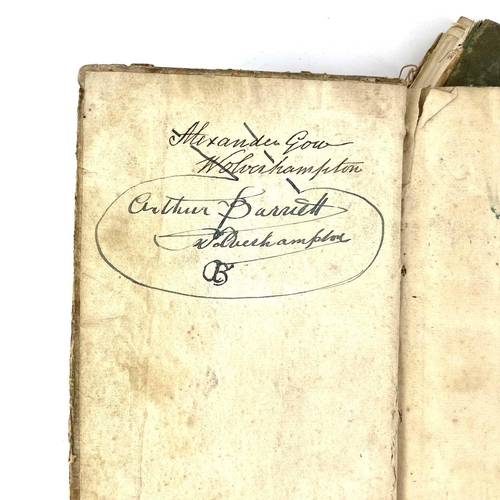 Alexander Gow
Wolverhampton
Arthur Barrett
Wolverhampton
AB